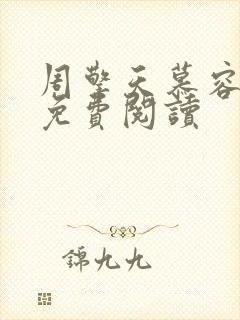 周擎天慕容
免費閱讀
錦九九